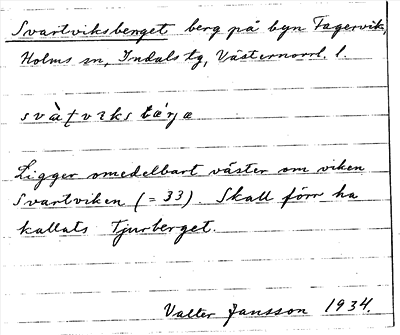 Svartviksberget berg på byn Fagervik,
Holms sn, Indals tg, Västernorrl. l.
Ligger omedelbart väster om viken
Svartviken (= 33). Skall förr ha
kallats Tjurberget.
Valter Jansson 1934.